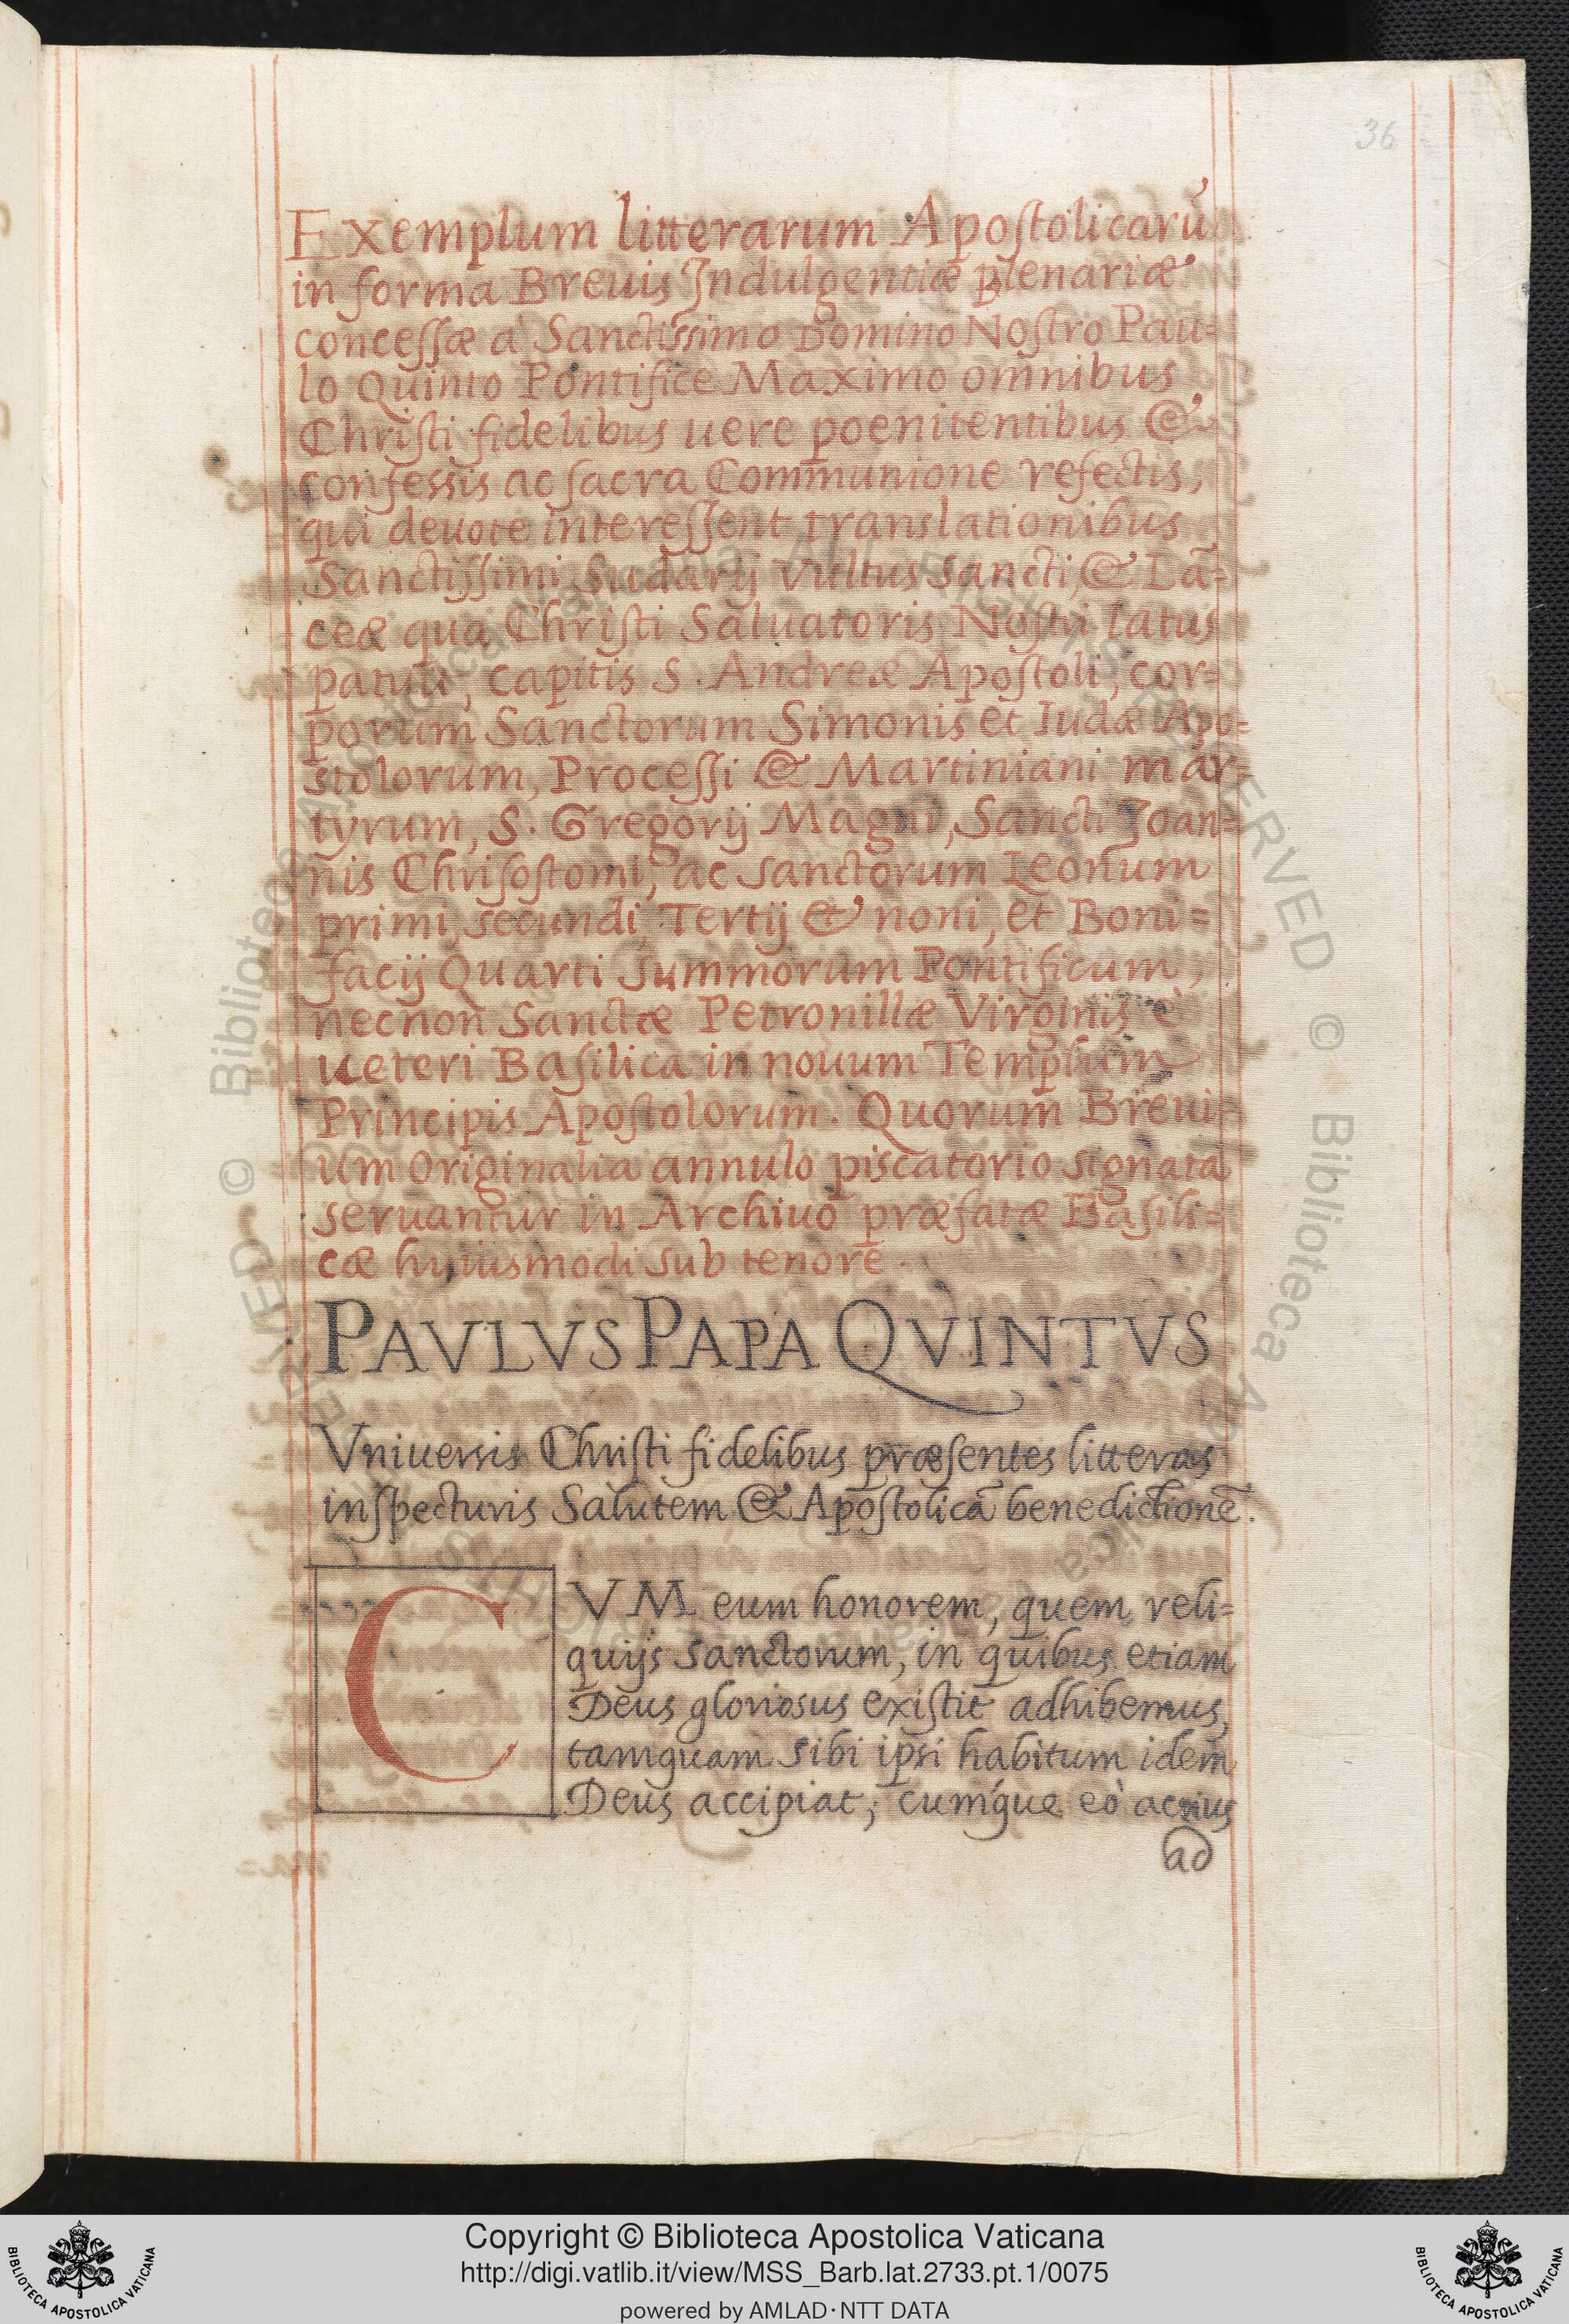 36
Exemplum litterarum Apostolicarũ
in forma Breuis Indulgentiæ plenariæ
concessæ à Sanctissimo Domino Nostro Pau=
lo Quinto Pontifice Maximo omnibus
Christi fidelibus uere poenitentibus &
confessis ac sacra Communione refectis,
qui deuote interessent translationibus
Sanctissimi Sudarij Vultus sancti, & Lã=
ceæ qua Christi Saluatoris Nostri latus
patuit, capitis S. Andreæ Apostoli, cor=
porum Sanctorum Simonis et Iudæ Apo=
stolorum, Processi & Martiniani mar=
tyrum, S. Gregorij Magni, Sancti Joan=
nis Chrisostomi, ac sanctorum Leonum
primi, secundi Tertij & noni, et Boni=
facij Quarti summorum Pontificum,
necnon Sanctæ Petronillæ Virginis è
ueteri Basilica in nouum Templum
Principis Apostolorum. Quorum Breui=
um Originalia annulo piscatorio signata
seruantur in Archiuo præfatæ Basili=
cæ huiusmodi sub tenore.
PAVLVS PAPA QVINTVS
Vniuersis Christi fidelibus præsentes litteras
inspecturis Salutem & Apostolicã benedictionẽ.
CVM eum honorem, quem reli=
quijs sanctorum, in quibus etiam
Deus gloriosus existit adhibemus,
tamquam sibi ipsi habitum idem
Deus accipiat; cumque eò acrius
ad
Copyright © Biblioteca Apostolica Vaticana
http://digi.vatlib.it/view/MSS_Barb.lat.2733.pt.1/0075
powered by AMLAD·NTT DATA
BIBLIOTECA APOSTOLICA VATICANA
BIBLIOTECA APOSTOLICA VATICANA